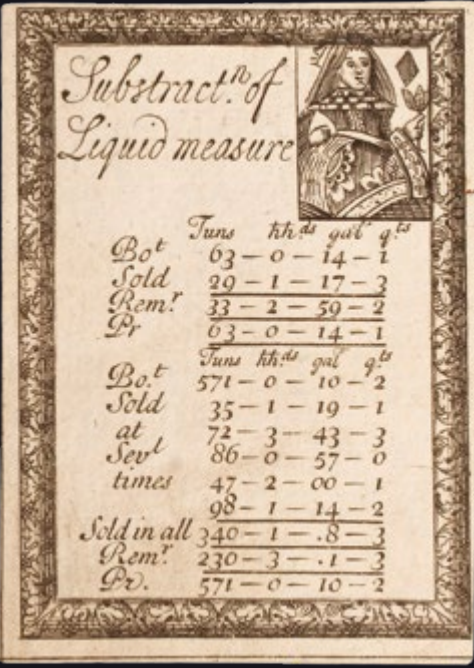 Substract.ⁿ of
Liquid measure
Tuns hh.ds gal q.ts
Bo.t 63 – 0 – 14 – 1
Sold 29 – 1 – 17 – 3
Rem.r 33 – 2 – 59 – 2
Pr 63 – 0 – 14 – 1
Tuns hh.ds gal q.ts
Bo.t 571 – 0 – 10 – 2
Sold 35 – 1 – 19 – 1
at 72 – 3 – 43 – 3
Sev.l 86 – 0 – 57 – 0
times 47 – 2 – 00 – 1
98 – 1 – 14 – 2
Sold in all 340 – 1 – .8 – 3
Rem.r 230 – 3 – .1 – 3
Pr. 571 – 0 – 10 – 2